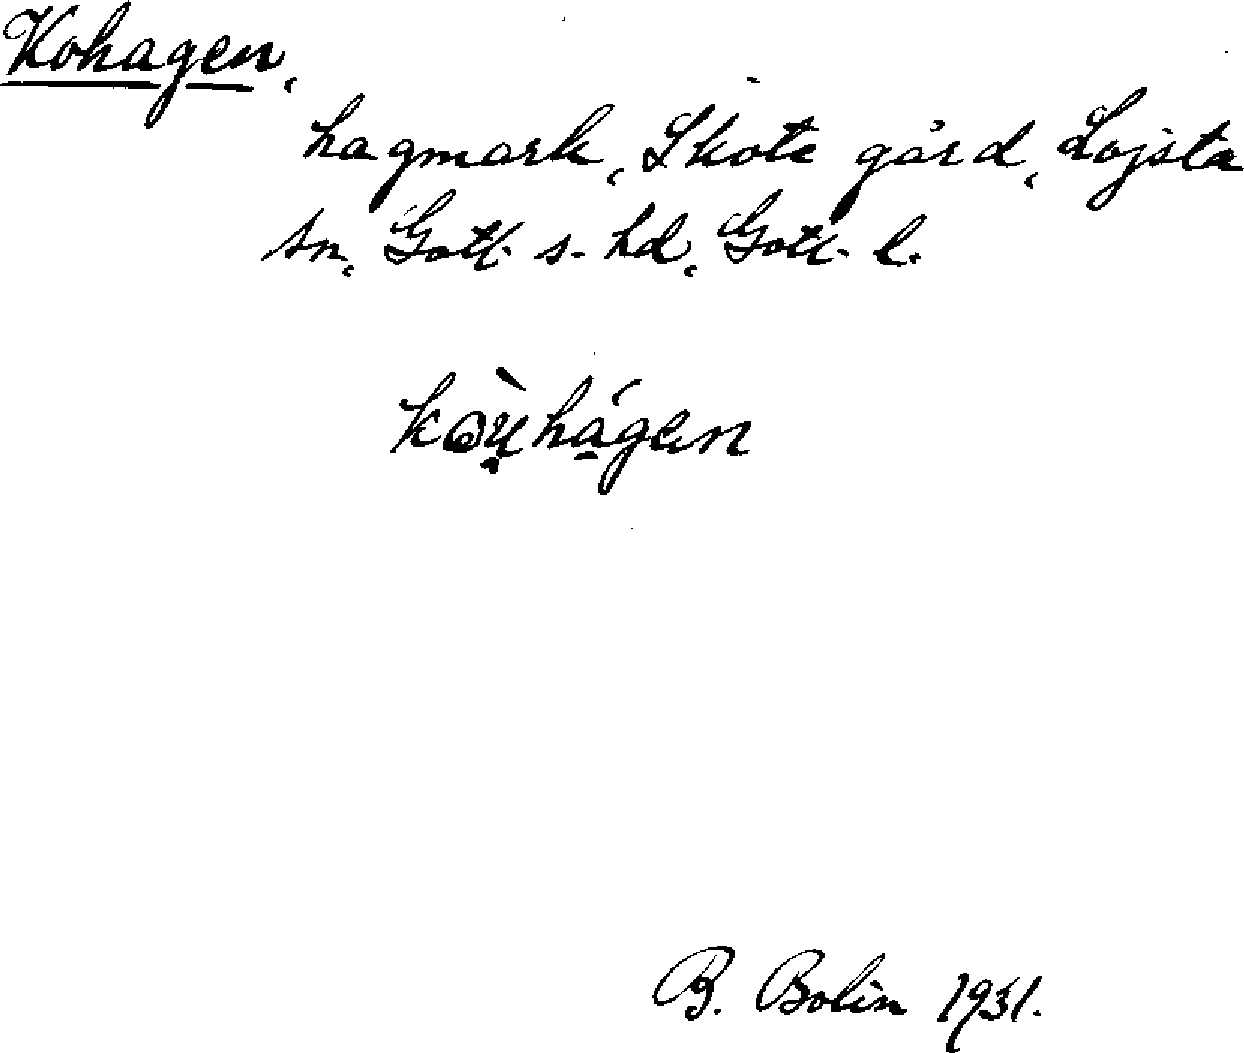 Kohagen,
hagmark, Skote gård, Lojsta
sn, Gotl. s. hd, Gotl. l.
kəu̯hagen
B. Bolin 1931.